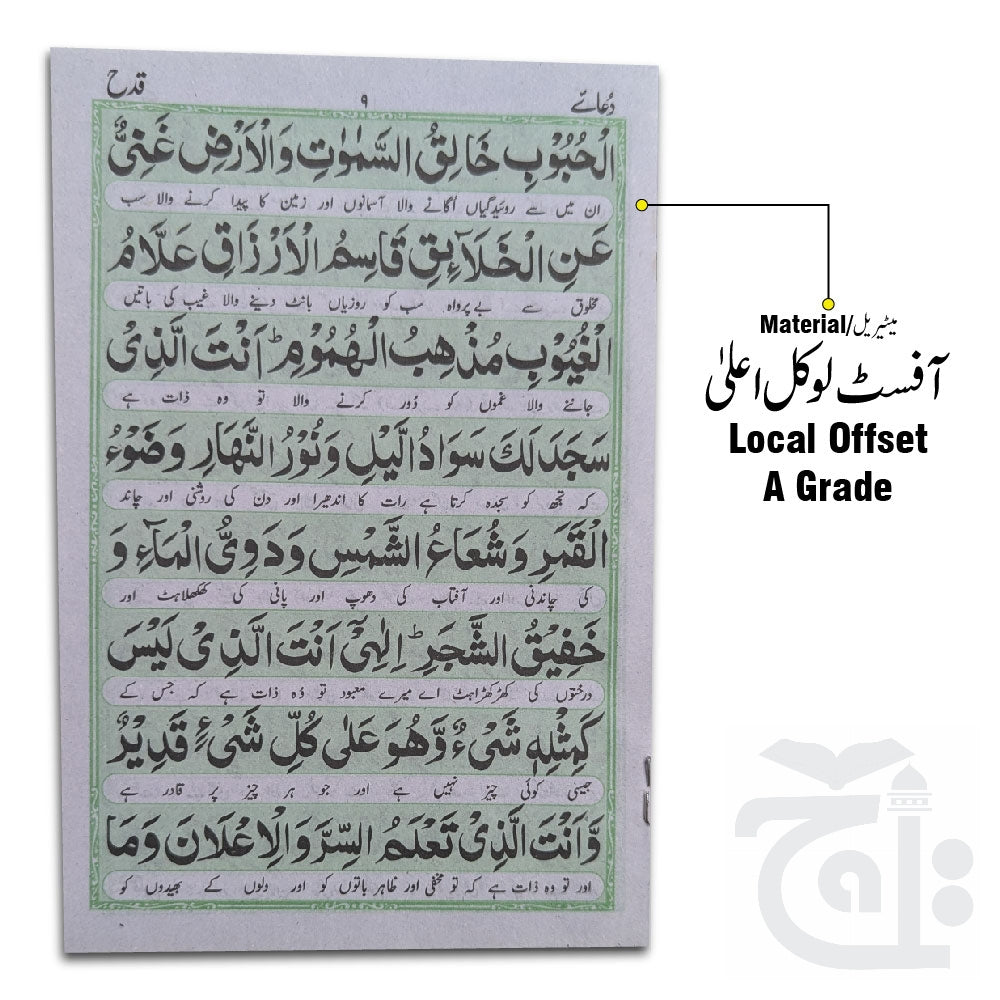 دُعائے ۹ قدح
الْحُبُوْبِ خَالِقُ السَّمٰوٰتِ وَالْاَرْضِ غَنِیٌّ
ان میں سے روئیدگیاں اُگانے والا آسمانوں اور زمین کا پیدا کرنے والا سب
عَنِ الْخَلَآئِقِ قَاسِمُ الْاَرْزَاقِ عَلَّامُ
مخلوق سے بے پرواہ سب کو روزیاں بانٹ دینے والا غیب کی باتیں
الْغُیُوْبِ مُذْهِبُ الْهُمُوْمِ ؕ اَنْتَ الَّذِیْ
جاننے والا غموں کو دُور کرنے والا تو وہ ذات ہے
سَجَدَ لَكَ سَوَادُ الَّیْلِ وَنُوْرُ النَّهَارِ وَضَوْءُ
کہ تجھ کو سجدہ کرتا ہے رات کا اندھیرا اور دن کی روشنی اور چاند
الْقَمَرِ وَشُعَاعُ الشَّمْسِ وَدَوِیُّ الْمَآءِ وَ
کی چاندنی اور آفتاب کی دھوپ اور پانی کی کھکھلاہٹ اور
خَفِیْقُ الشَّجَرِ ؕ اِلٰهِیْٓ اَنْتَ الَّذِیْ لَیْسَ
درختوں کی کھڑکھڑاہٹ اے میرے معبود تو وُہ ذات ہے کہ جس کے
كَمِثْلِهٖ شَیْءٌ وَّهُوَ عَلٰی كُلِّ شَیْءٍ قَدِیْرٌ
جیسی کوئی چیز نہیں ہے اور جو ہر چیز پر قادر ہے
وَّاَنْتَ الَّذِیْ تَعْلَمُ السِّرَّ وَالْاِعْلَانَ وَمَا
اور تو وہ ذات ہے کہ تو مخفی اور ظاہر باتوں کو اور دلوں کے بھیدوں کو
Material/میٹیریل
آفسٹ لوکل اعلیٰ
Local Offset
A Grade